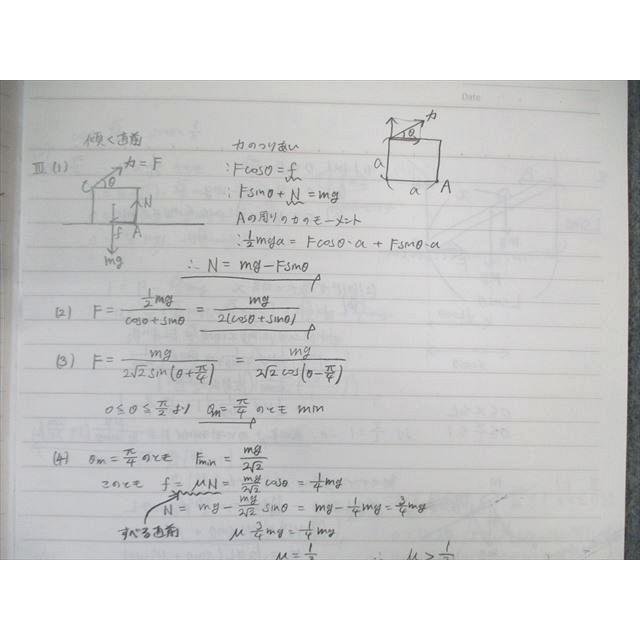 Date
傾く直前
力のつりあい
III (1)
力=F
C
θ
N
f
A
mg
力
θ
a
a
A
∴Fcosθ = f
∴Fsinθ + N = mg
Aの周りの力のモーメント
∴ 1/2 mga = Fcosθ・a + Fsinθ・a
∴ N = mg - Fsinθ
(2) F = (1/2 mg)/(cosθ+sinθ) = mg/(2(cosθ+sinθ))
(3) F = mg/(2√2 sin(θ+π/4)) = mg/(2√2 cos(θ-π/4))
0≦θ≦π/2 より θm = π/4 のとき min
(4) θm = π/4 のとき Fmin = mg/(2√2)
このとき f = μN = mg/(2√2) cosθ = 1/4 mg
N = mg - mg/(2√2) sinθ = mg - 1/4 mg = 3/4 mg
すべる直前
μ 3/4 mg = 1/4 mg